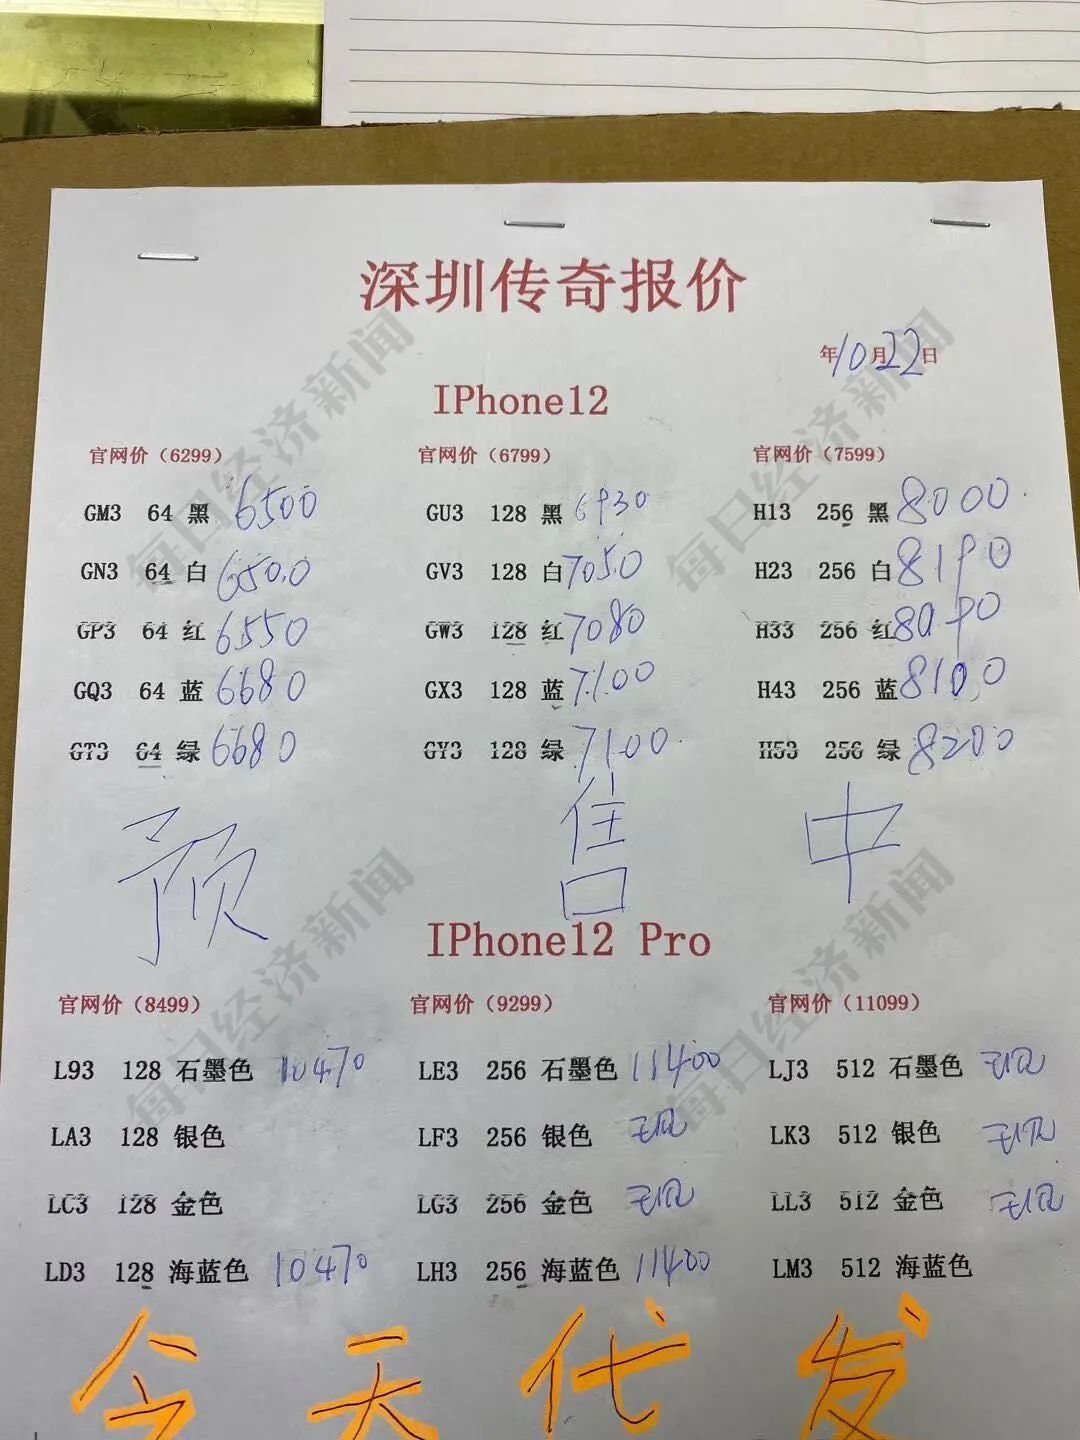 深圳传奇报价
年10月22日
IPhone12
官网价（6299） 官网价（6799） 官网价（7599）
GM3 64 黑 6500 GU3 128 黑 6930 H13 256 黑 8000
GN3 64 白 6500 GV3 128 白 7050 H23 256 白 8190
GP3 64 红 6550 GW3 128 红 7080 H33 256 红
GQ3 64 蓝 6680 GX3 128 蓝 7100 H43 256 蓝 8100
GT3 64 绿 6680 GY3 128 绿 7100 H53 256 绿 8200
预售中
IPhone12 Pro
官网价（8499） 官网价（9299） 官网价（11099）
L93 128 石墨色 10470 LE3 256 石墨色 11400 LJ3 512 石墨色
LA3 128 银色 LF3 256 银色 LK3 512 银色
LC3 128 金色 LG3 256 金色 LL3 512 金色
LD3 128 海蓝色 10470 LH3 256 海蓝色 11400 LM3 512 海蓝色
今天代发
每日经济新闻
每日经济新闻
每日经济新闻
每日经济新闻